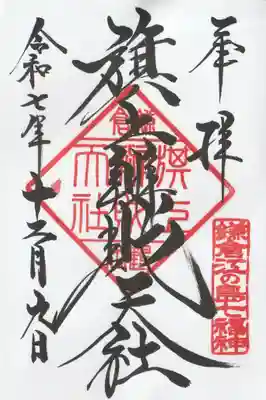 奉拝
旗上弁財天社
令和七年十二月九日
鎌倉江の島七福神